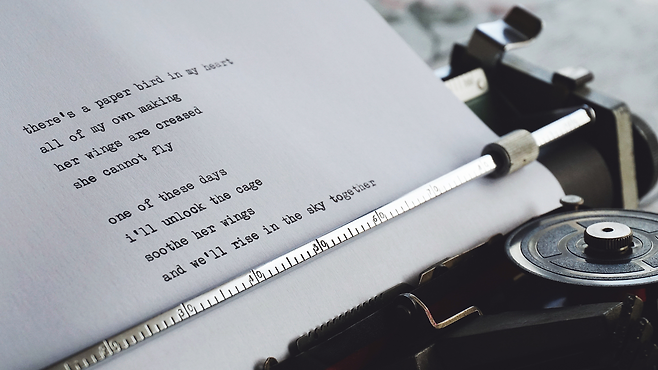 there's a paper bird in my heart
all of my own making
her wings are creased
she cannot fly
one of these days
i'll unlock the cage
soothe her wings
and we'll rise in the sky together
20
30
40
50
60
70